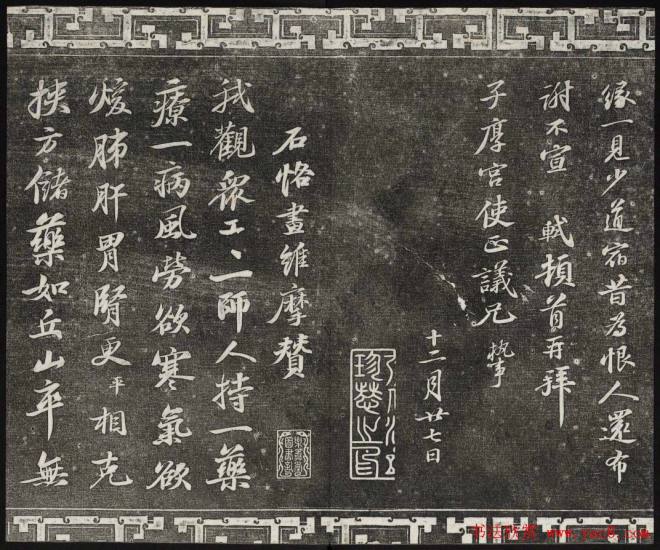 緣一見少道宿昔為恨人還布
謝不宣 軾頓首再拜
子厚宮使正議兄 執事
十二月廿七日
石恪畫維摩贊
我觀衆工工一師人持一藥
療一病風勞欲寒氣欲
煖肺肝胃腎更平相克
挾方儲藥如丘山卒無
书法欣赏 www.yac8.com